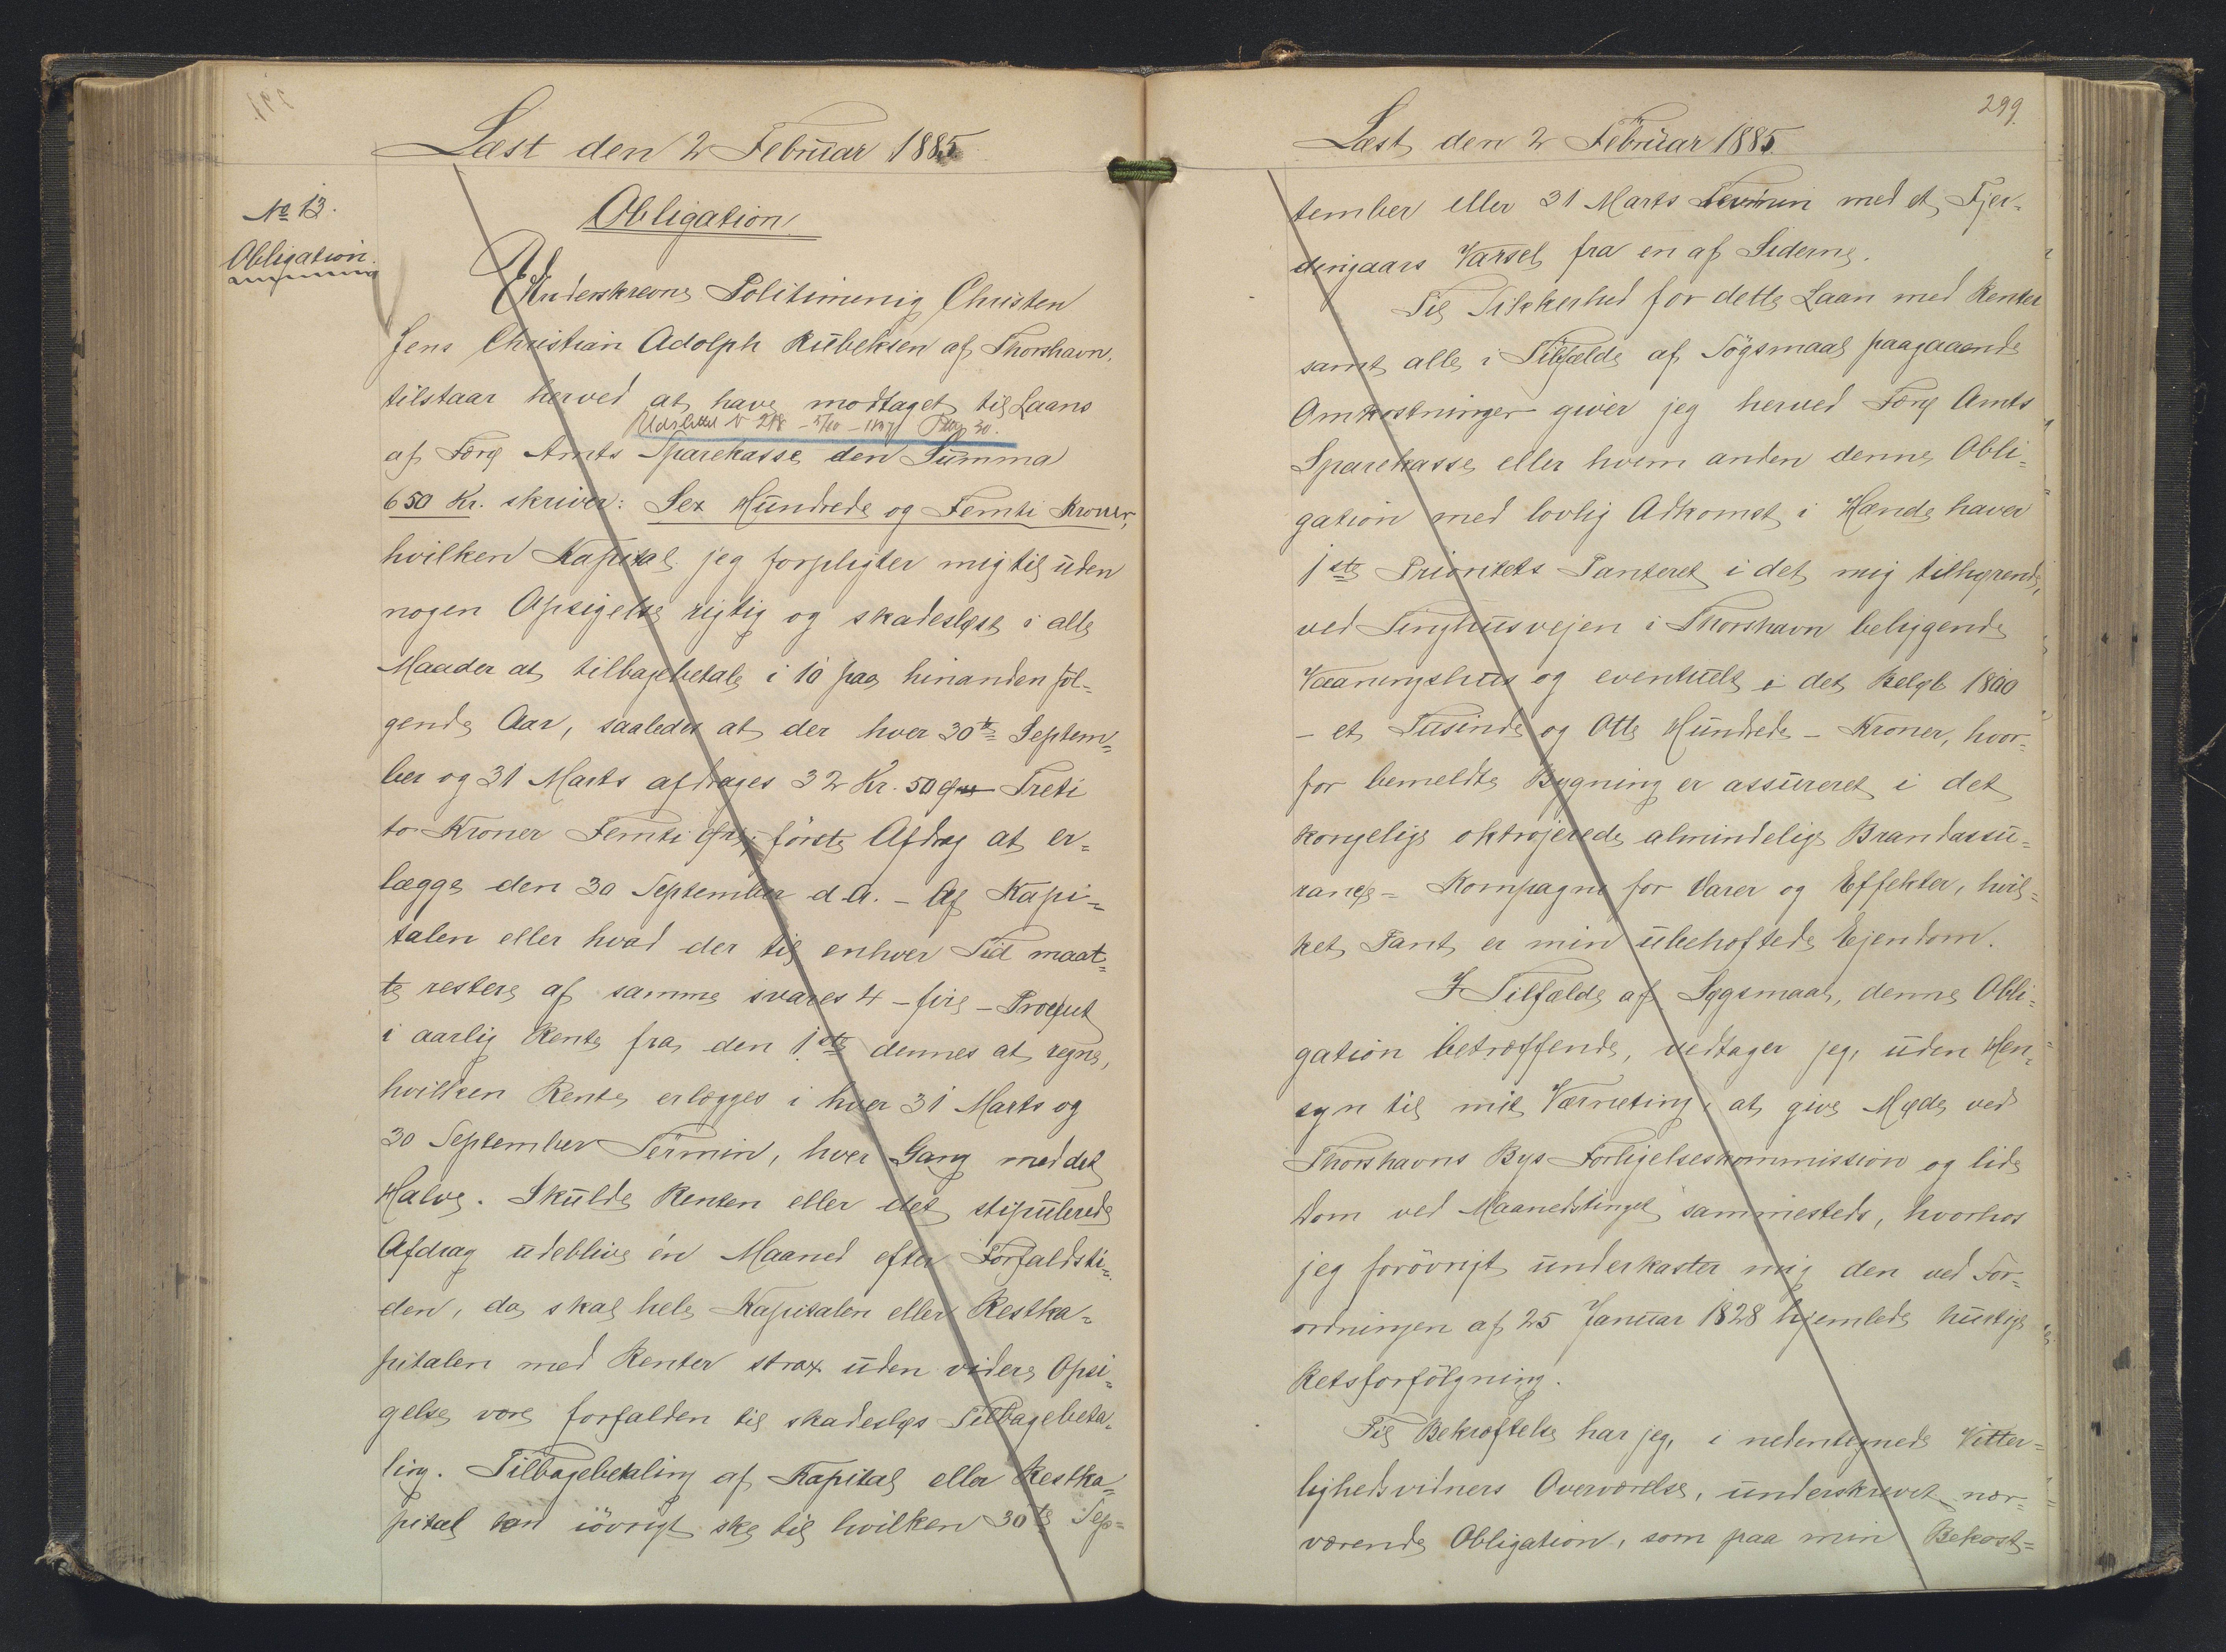 Læst den 2 Februar 1885
No 13.
Obligation.
Obligation.
Underskrevne Politimenig Christen
Jens Christian Adolph Rubeksen af Thorshavn,
tilstaar herved at have modtaget til Laans
Udslettet 5/10 Pag 30.
af Færø Amts Sparekasse den Summa
650 Kr. skriver: Sex Hundrede og Femti Kroner,
hvilken Kapital jeg forpligter mig til uden
nogen Opsigelse rigtig og skadesløst i alle
Maader at tilbagebetale i 10 paa hinanden føl=
gende Aar, saaledes at der hver 30te Septem=
ber og 31 Marts afdrages 32 Kr. 50 Øre Treti
to Kroner Femti Øre, første Afdrag at er=
lægge den 30 September d. A. - Af Kapi=
talen eller hvad der til enhver Tid maat=
te restere af samme svares 4 - fire - Procent
i aarlig Rente fra den 1ste dennes at regne,
hvilken Rente erlægges i hver 31 Marts og
30 September Termin, hver Gang med det
Halve. Skulde Renten eller det stipulerede
Afdrag udeblive én Maaned efter Forfaldsti=
den, da skal hele Kapitalen eller Restka=
pitalen med Renter strax uden videre Opsi=
gelse være forfalden til skadesløs Tilbagebeta=
ling. Tilbagebetaling af Kapital eller Restka=
pital kan iøvrigt ske til hvilken 30te Sep=
299.
Læst den 2 Februar 1885.
tember eller 31 Marts Termin med et Fjer=
dingaars Varsel fra en af Siderne.
Til Sikkerhed for dette Laan med Renter
samt alle i Tilfælde af Søgsmaal paagaaende
Omkostninger giver jeg herved Færø Amts
Sparekasse eller hvem anden denne Obli=
gation med lovlig Adkomst i Hænde haver
1ste Prioritets Panteret i det mig tilhørende,
ved Tinghusvejen i Thorshavn beliggende
Vaaningshus og eventuelt i det Beløb 1800
- et Tusinde og Otte Hundrede - Kroner, hvor=
for bemeldte Bygning er assureret i det
kongelige oktrojerede almindelige Brandassu=
rance= Kompagni for Varer og Effekter, hvil=
ket Pant er min ubehæftede Ejendom.
I Tilfælde af Søgsmaal, denne Obli=
gation betræffende, vedtager jeg, uden Hen=
syn til mit Værneting, at give Møde ved
Thorshavns Bys Forligelseskommission og lide
Dom ved Maanedstinget sammesteds, hvorhos
jeg forøvrigt underkaster mig den ved For=
ordningen af 25 Januar 1828 hjemlede hurtige
Retsforfølgning.
Til Bekræftelse har jeg, i nedentegnede Vitter=
lighedsvidners Overværelse, underskrevet nær=
værende Obligation, som paa min Bekost=